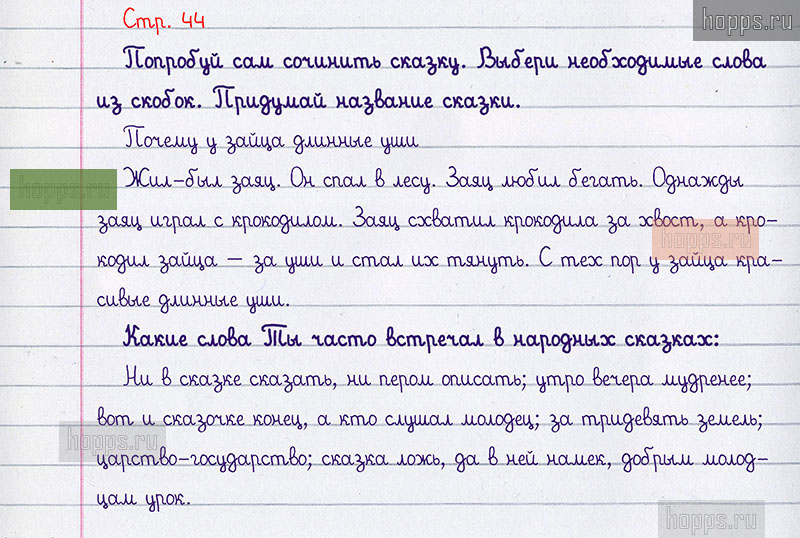 Стр. 44
hopps.ru
Попробуй сам сочинить сказку. Выбери необходимые слова
из скобок. Придумай название сказки.
Почему у зайца длинные уши
Жил-был заяц. Он спал в лесу. Заяц любил бегать. Однажды
hopps.ru
заяц играл с крокодилом. Заяц схватил крокодила за хвост, а кро-
hopps.ru
кодил зайца – за уши и стал их тянуть. С тех пор у зайца кра-
сивые длинные уши.
Какие слова Ты часто встречал в народных сказках:
Ни в сказке сказать, ни пером описать; утро вечера мудренее;
вот и сказочке конец, а кто слушал молодец; за тридевять земель;
hopps.ru
царство-государство; сказка ложь, да в ней намек, добрым молод-
цам урок.
hopps.ru